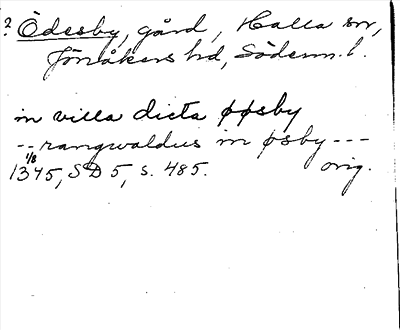 ? Ödesby, gård, Halla sn,
Jönåkers hd, Söderm. l.
in villa dicta øøsby
-- rangwaldus in øsby ---
1/8
1345, SD 5, s. 485. orig.